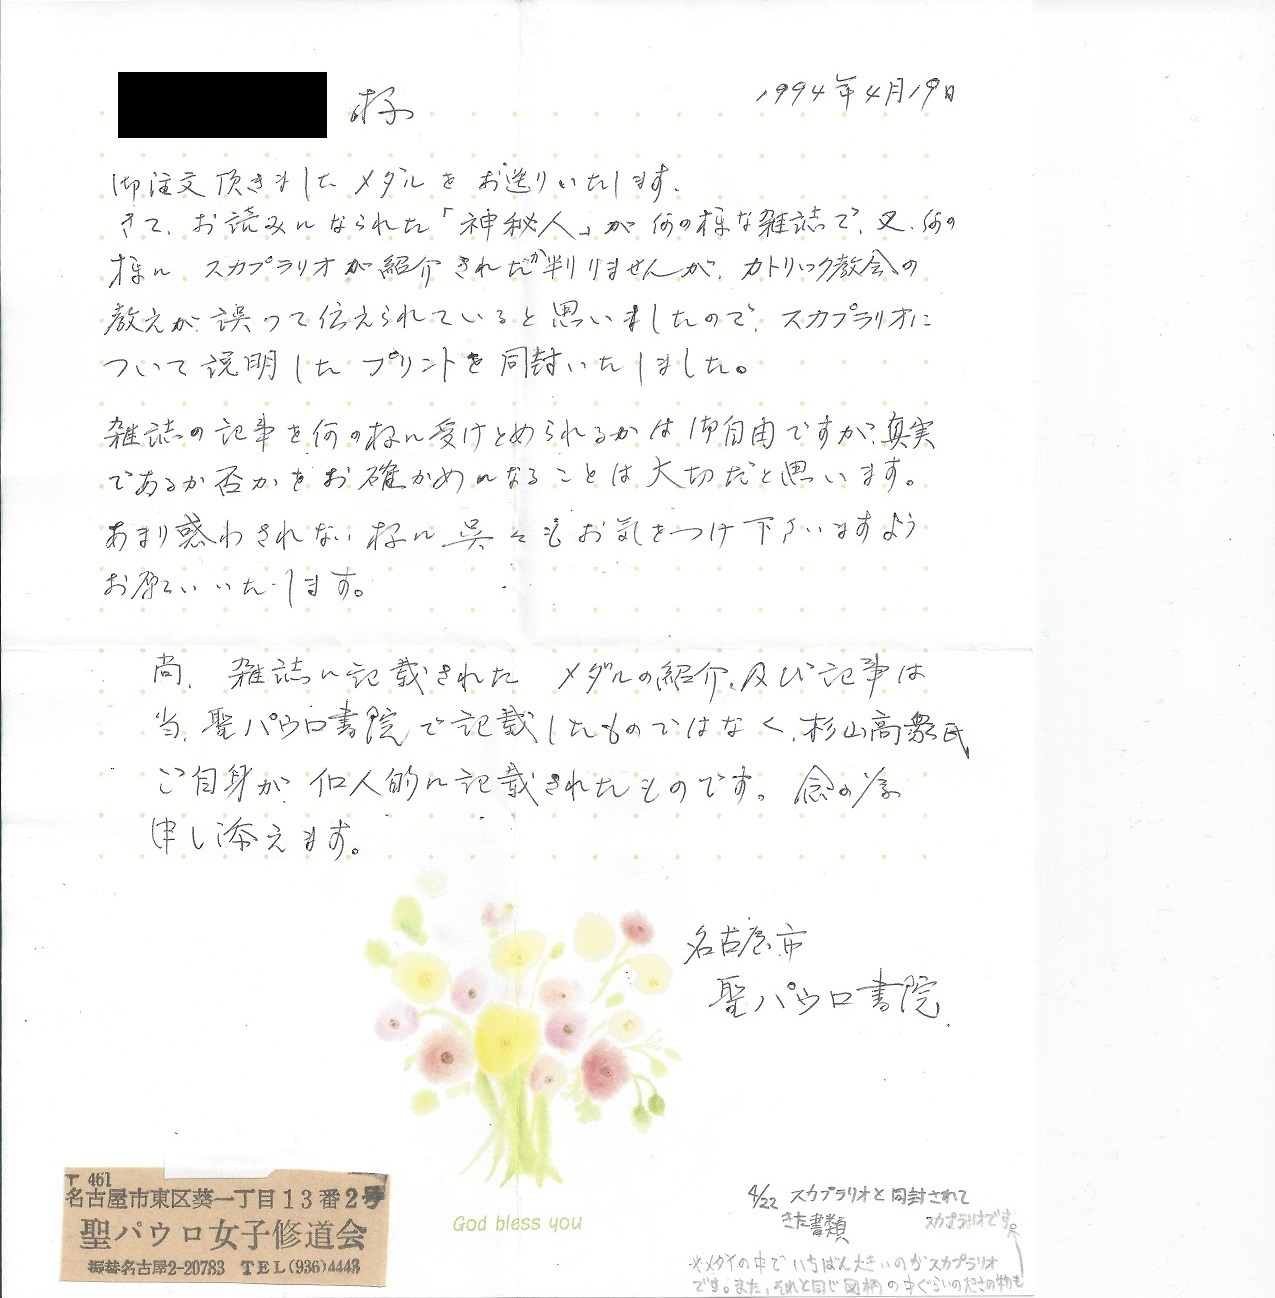 様
1994年4月19日
御注文頂きました メダルを お送りいたします.
さて、お読みになられた「神秘人」が 何の様な雑誌で、又、何の
様に スカプラリオが紹介されたか判りませんが、カトリック教会の
教えが、誤って伝えられていると思いましたので、スカプラリオに
ついて説明した プリントを同封いたしました。
雑誌の記事を何の様に受けとめられるかは 御自由ですが、真実
であるか否かをお確かめになることは大切だと思います。
あまり惑わされない様に 呉々もお気をつけ下さいますよう
お願いいたします。
尚、雑誌に記載された メダルの紹介、及び記事は
当、聖パウロ書院で記載したものではなく、杉山高衆氏
ご自身が、個人的に記載されたものです。念の為
申し添えます。
名古屋市
聖パウロ書院.
God bless you
〒 461
名古屋市東区葵一丁目13番2号
聖パウロ女子修道会
振替名古屋2-20783 TEL(936)4448
4/22 スカプラリオと同封されて
きた書類
スカプラリオです。
※メダイの中でいちばん大きいのがスカプラリオ
です。また、それと同じ図柄の中ぐらいの大きさの物も